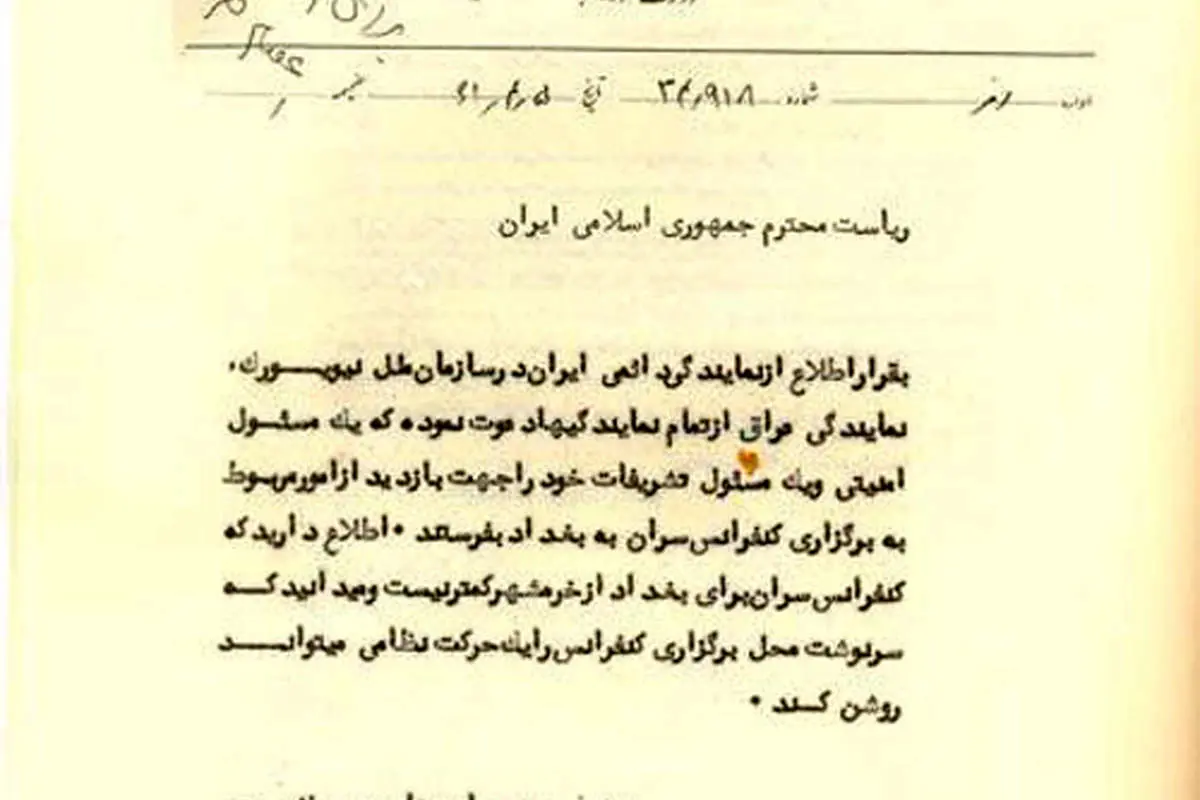 اداره دفتر شماره ۳۴٫۹۱۸ تاریخ ۶۱٫۴٫۵
ریاست محترم جمهوری اسلامی ایران
بقراراطلاع ازنمایندگی دائمی ایران در سازمان ملل نیویـــورك،
نمایندگی عراق ازتمام نمایندگیها دعوت نموده که یك مسئـول
امنیتی ویك مسئول تشریفات خود راجهت بازدید ازامورمربـوط
به برگزاری کنفرانس سران به بغداد بفرستند • اطلاع دارید که
کنفرانس سران برای بغداد ازخرمشهرکمترنیست ومیدانید کــه
سرنوشت محل برگزاری کنفرانس رایك حرکت نظامی میتوانـــد
روشن کــند •